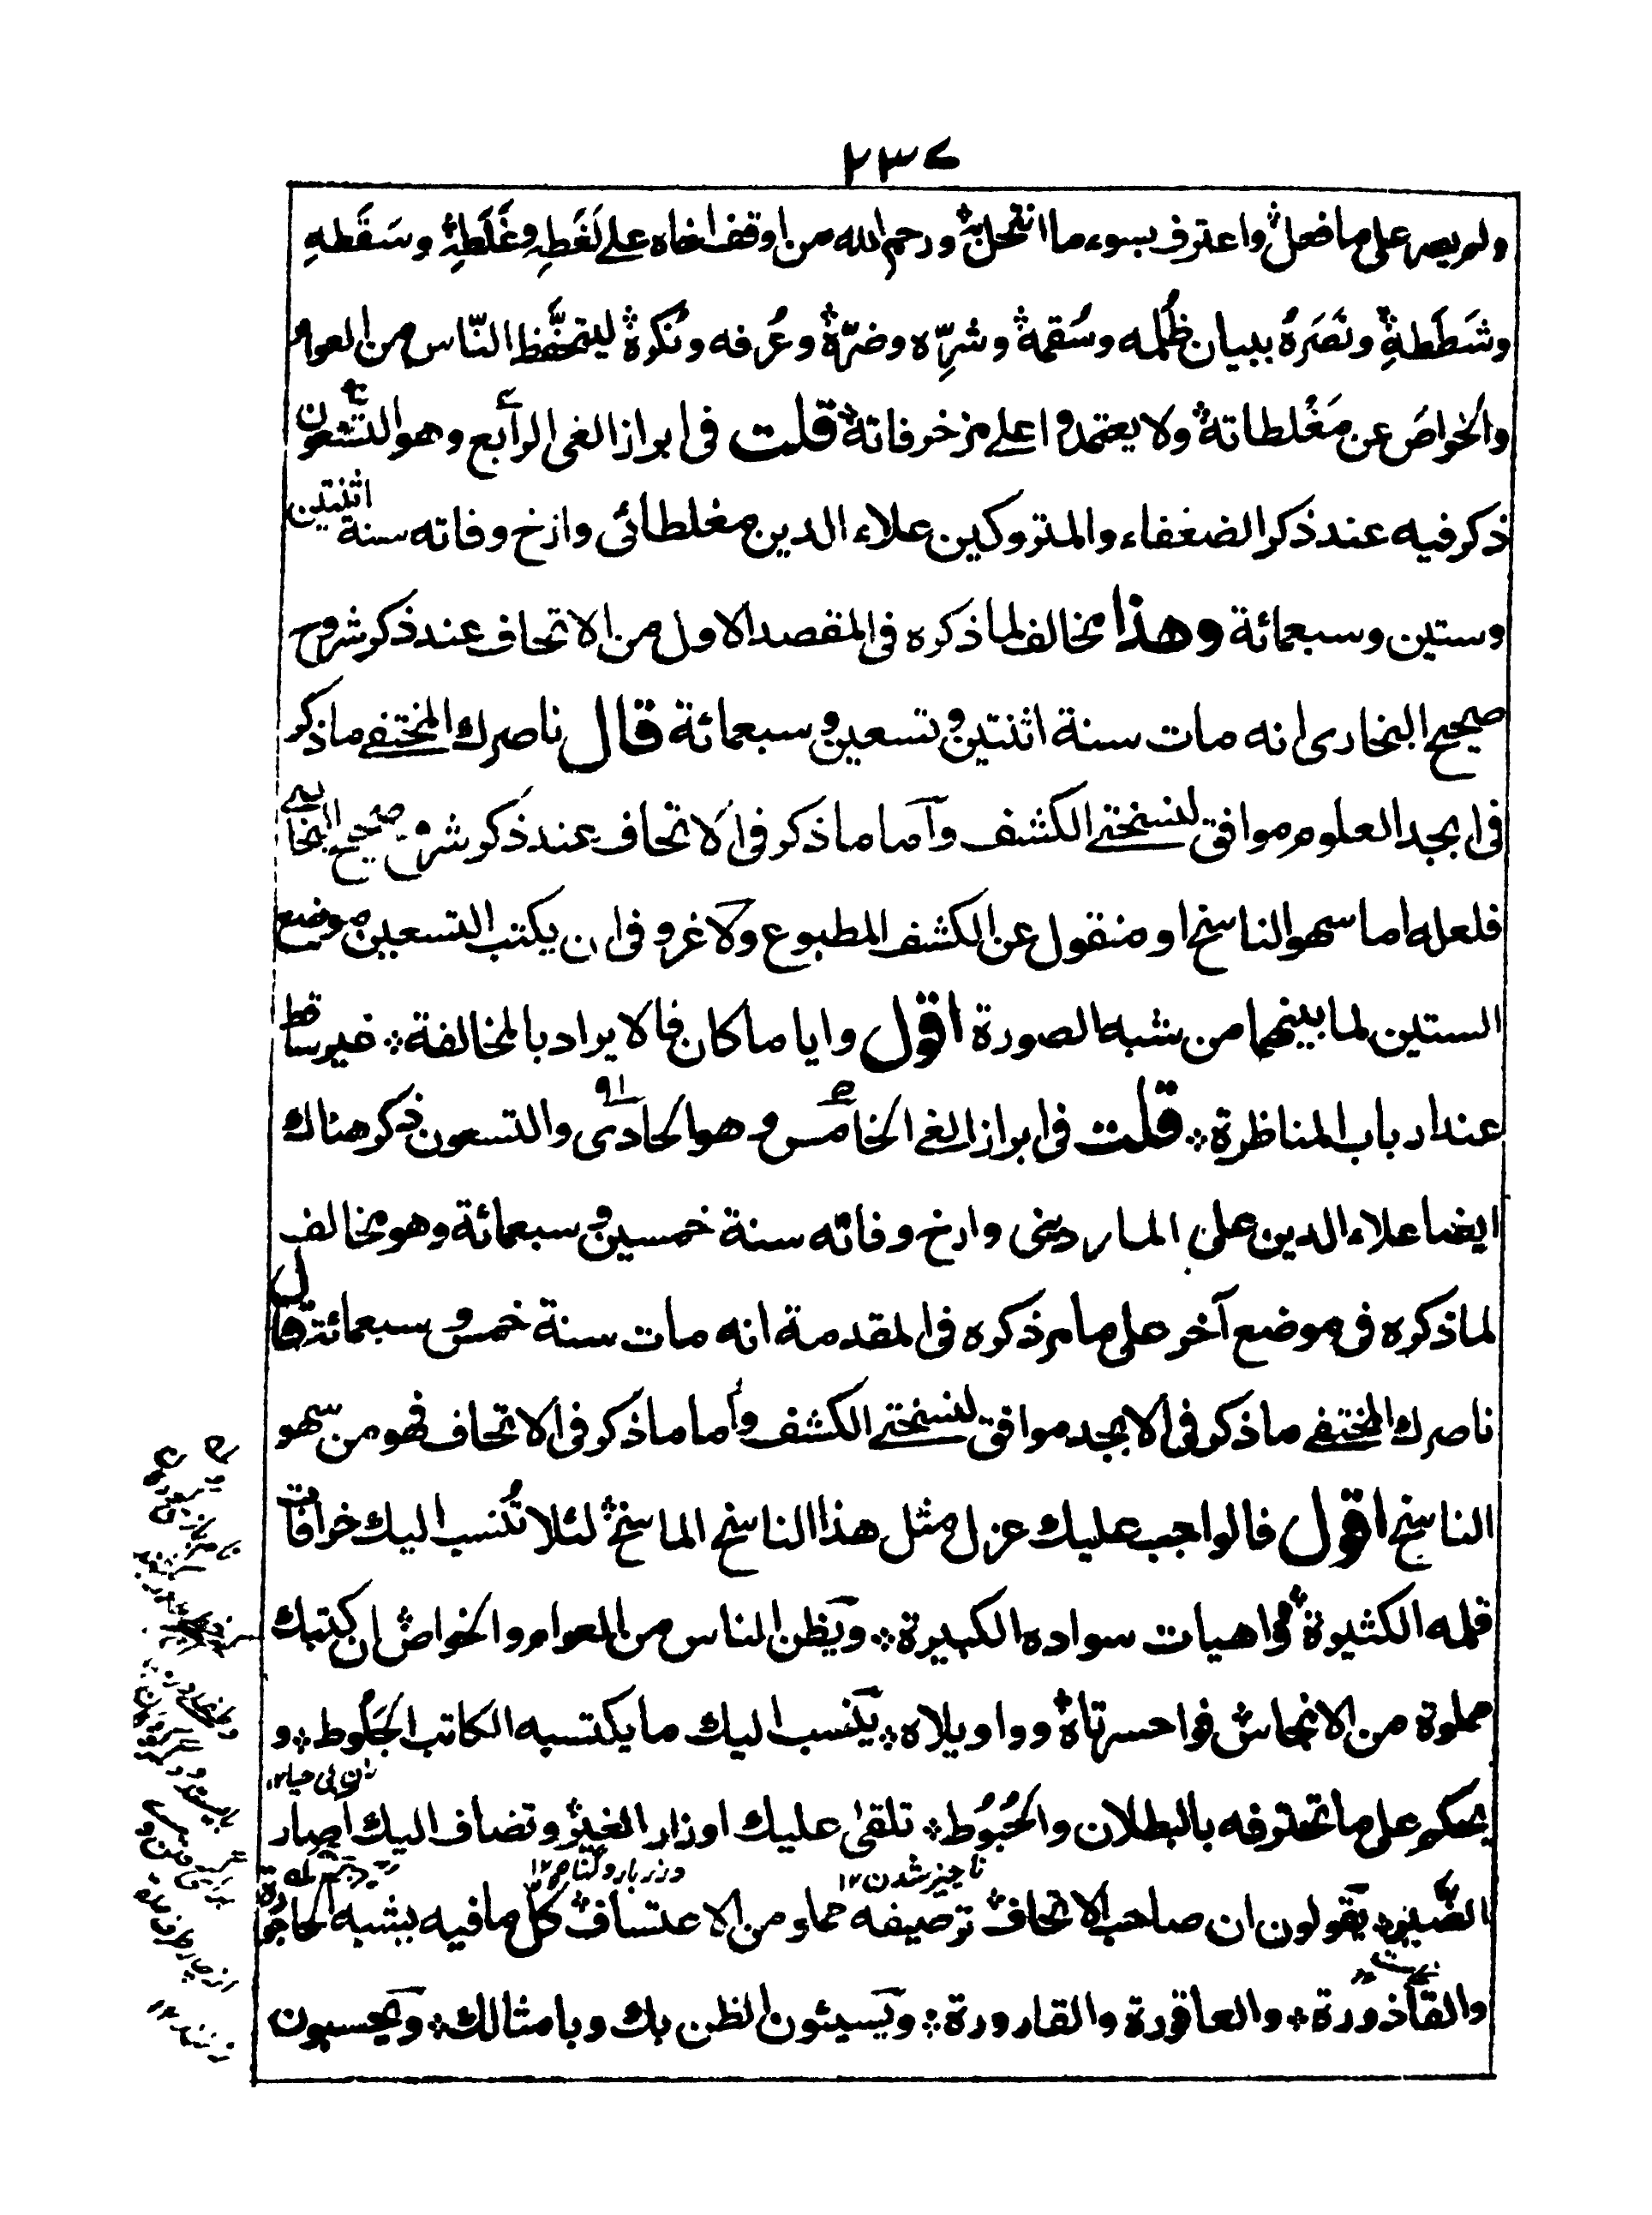 ٢٣٧
ولم يصر على ما فعل ۞ واعترف بسوء ما انتحل به ۞ ورحم الله من اوقف اخاه على لَغَطِه وغَلَطِهٖ ۞ وسَقَطهِ
وشَطَطهِ ۞ ونَصَرَهُ ببيان ظُلمه وسُقمهٖ ۞ وشرِّه وضرّهٖ ۞ وعُرفه ونُكرهٖ ۞ ليتحفَّظ النّاس من العوام
والخواصّ عن مَغْلطاتهٖ ۞ ولا يعتمدوا على مزخرفاتهٖ ۞ قلت فى ابراز الغى الرابع وهو التسعون
ذكر فيه عند ذكر الضعفاء والمتروكين علاء الدين مغلطائى وارخ وفاته سنة اثنتين
وستين وسبعمائة وهذا مخالف لما ذكره فى المقصد الاول من الاتحاف عند ذكر شروح
صحيح البخارى انه مات سنة اثنتين وتسعين وسبعمائة قال ناصرك المختفے ما ذكر
فى ابجد العلوم موافق لنسختے الكشف وآما ما ذكر فى الاتحاف عند ذكر شروح صحيح البخارى
فلعله اما سهو الناسخ او منقول عن الكشف المطبوع ولا غرو فى ان يكتب التسعين موضع
الستين لما بينهما من شبه الصورة اقول وايا ما كان فالايراد بالمخالفة ۞ غير ساقط
عند ارباب المناظرة ۞ قلت فى ابراز الغى الخامس وهو الحادى ٩١ والتسعون ذكر هناك
ايضا علاء الدين على الماردينى وارخ وفاته سنة خمسين وسبعمائة وهو مخالف
لما ذكره فى موضع آخر على ما مر ذكره فى المقدمة انه مات سنة خمس وسبعمائة قال
ناصرك المختفے ما ذكر فى الابجد موافق لنسختے الكشف وأما ما ذكر فى الاتحاف فهو من سهو
الناسخ اقول فالواجب عليك عزل مثل هذا الناسخ الماسخ ۞ لئلا تُنسب اليك خرافات
قلمه الكثيرة ۞ وواهيات سواده الكبيرة ۞ ويظن الناس من العوام والخواص ۞ ان كتبك
مملوة من الانجاس ۞ فواحسرتاه ۞ وواويلاه ۞ يَنسب اليك ما يكتسبه الكاتب الجَلُوط ۞ و
يحكم على ما تحترفه بالبطلان والحُبُوط ۞ تلقىٰ عليك اوزار الغير ۞ وتضاف اليك اصار
ناچيز شدن ١٢
الضَّير ۞ يقولون ان صاحب الاتحاف ۞ ترصيفه مملو من الاعتساف ۞ كل ما فيه يشبه الحاجُورة
والقاذورة ۞ والعاقورة والقارورة ۞ ويسيئون الظن بك وبامثالك ۞ ويحسبون